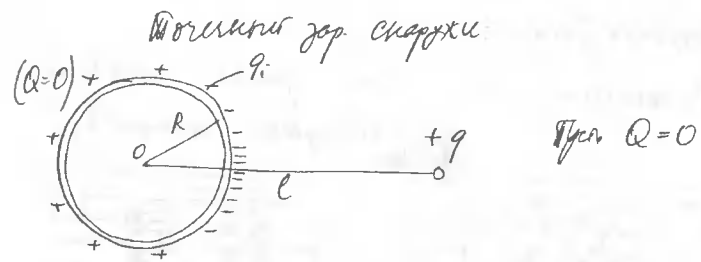 Точечный зар. снаружи
(Q=0)
+ +
qᵢ
+
R
O
+ q
Пусть Q = 0
l
+
+
+ +